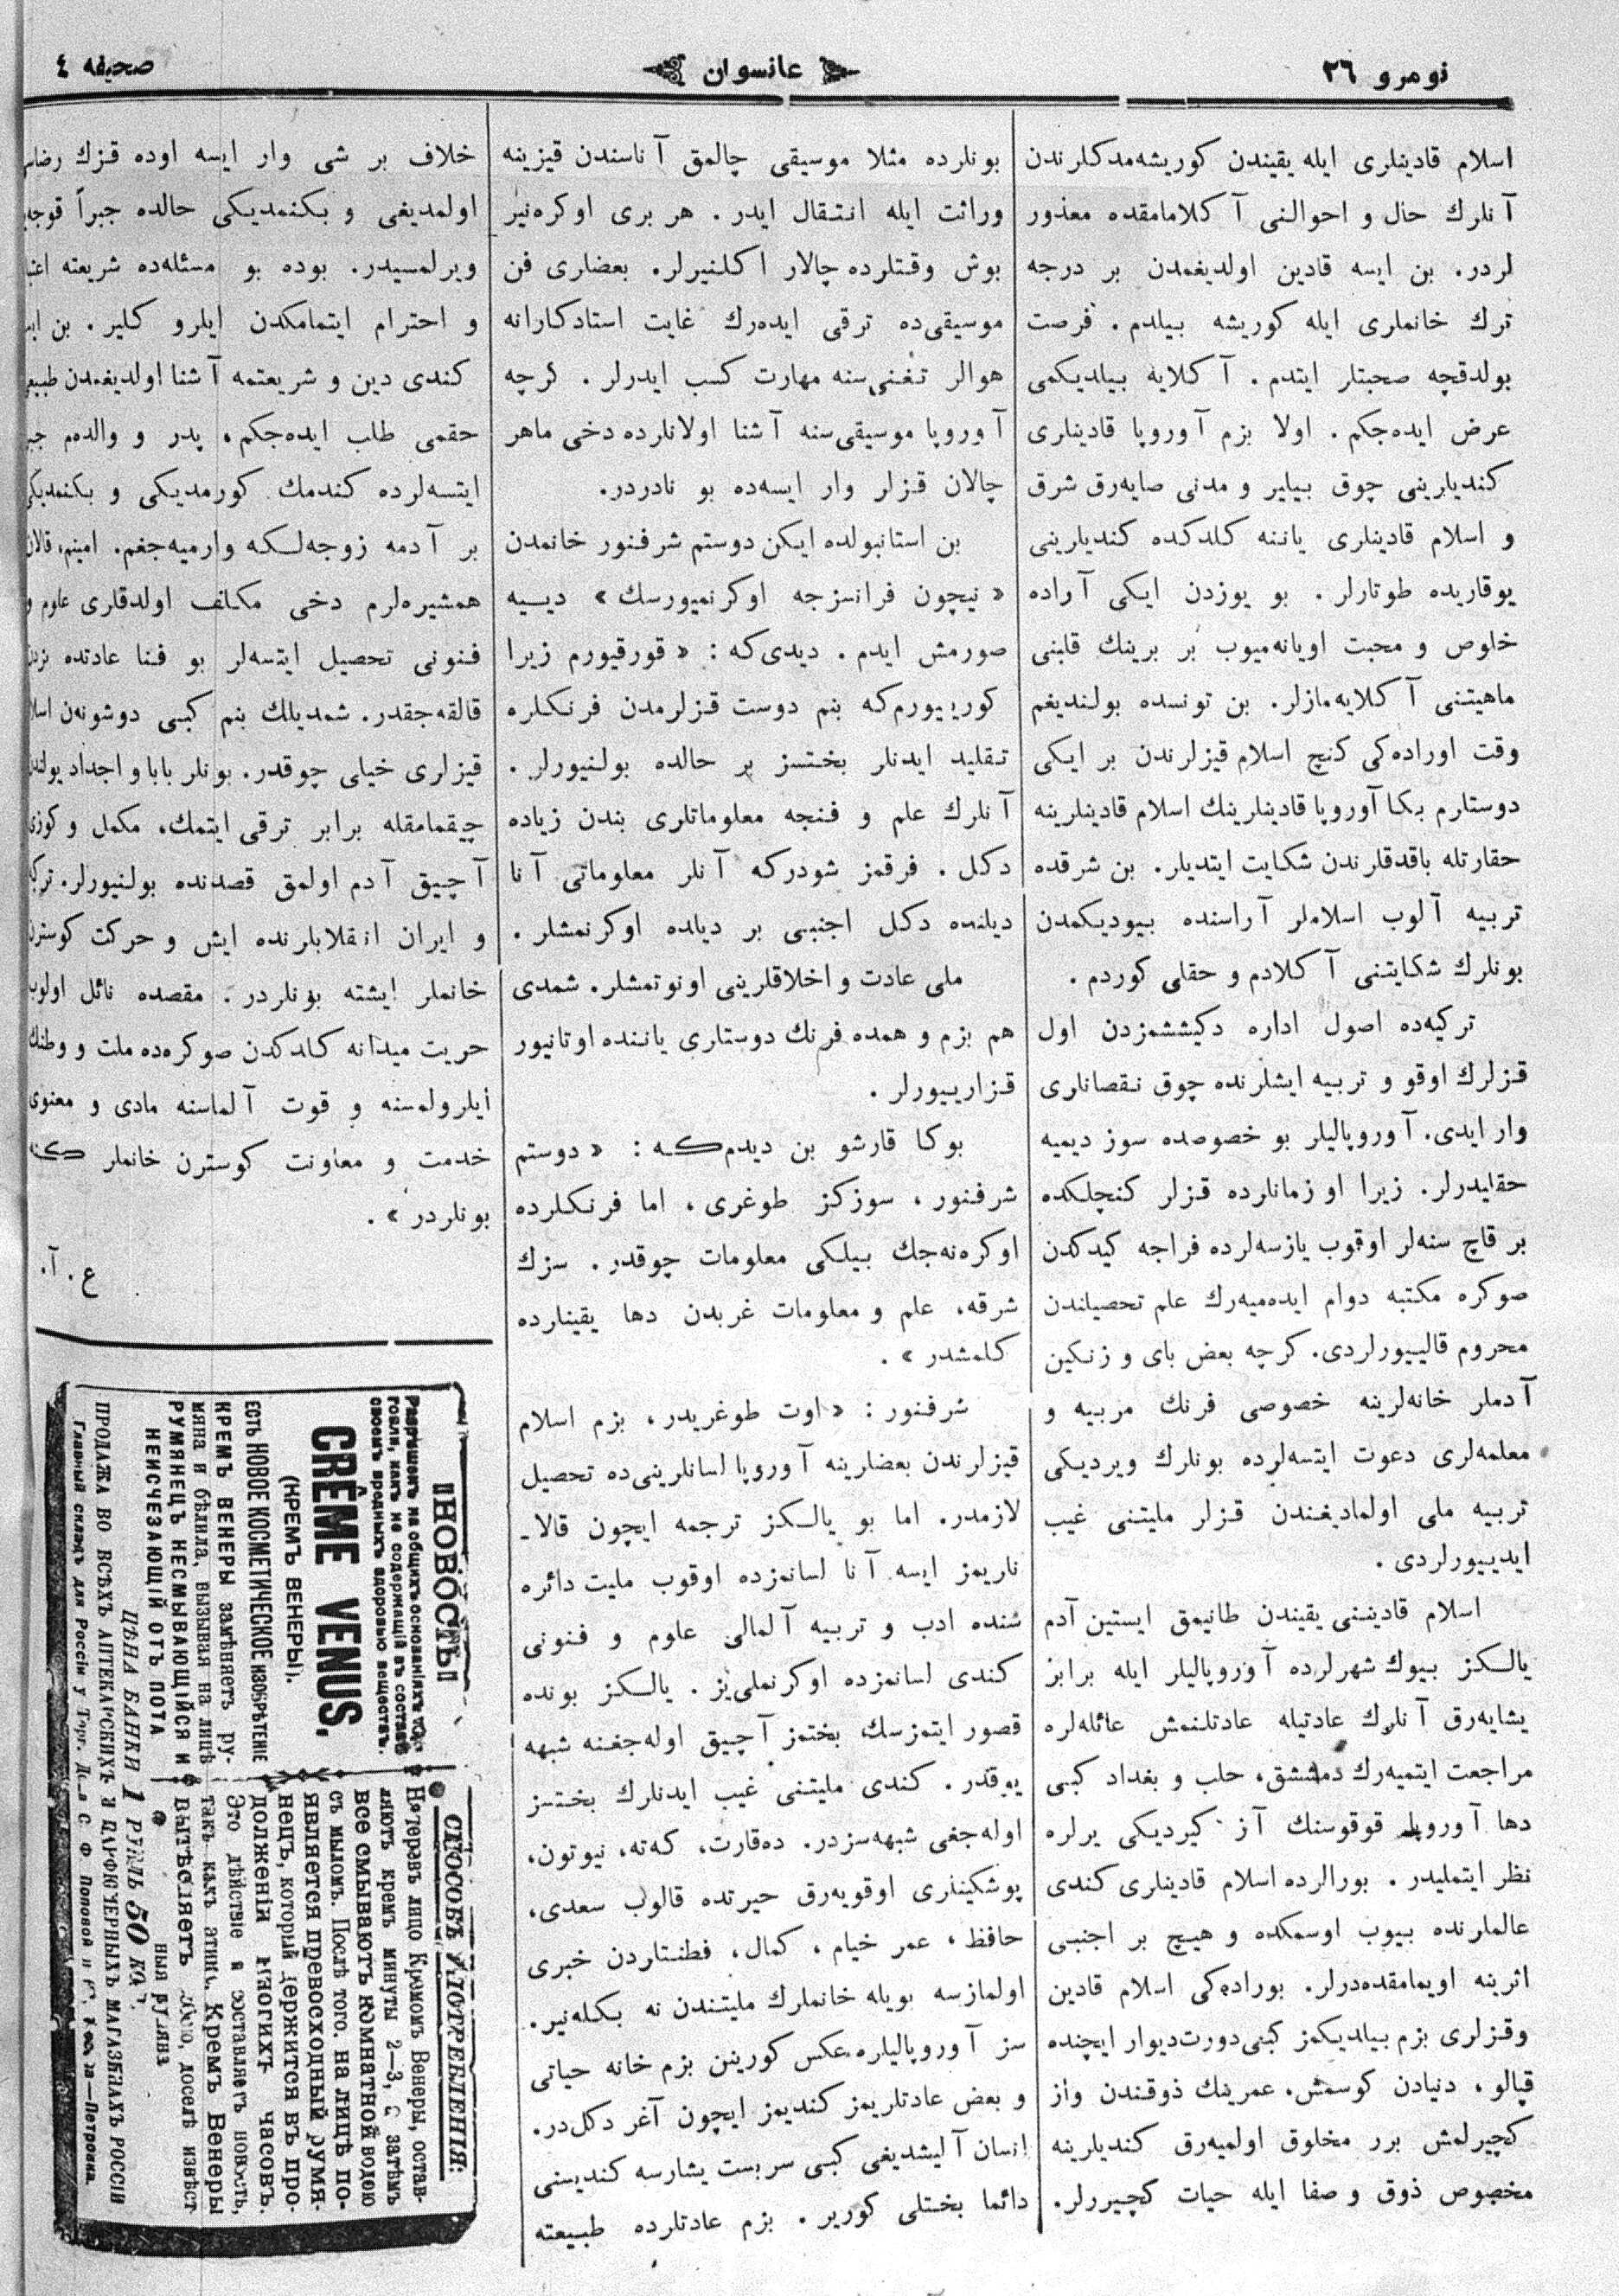 نومرو ٢٦
عالم نسوان
صحیفه ٤
اسلام قادینلری ایله یقیندن کوریشه‌مدکلرندن
آنلرك حال و احوالنی آکلامامقده معذور
لردر. بن ایسه قادین اولدیغمدن بر درجه
ترك خانملری ایله کوریشه بیلدم. فرصت
بولدقچه صحبتلر ایتدم. آکلایه بیلدیکمی
عرض ایده‌جکم. اولا بزم آوروپا قادینلری
کندیلرینی چوق بیلیر و مدنی صایه‌رق شرق
و اسلام قادینلری یاننه کلدکده کندیلرینی
یوقاریده طوتارلر. بو یوزدن ایکی آراده
خلوص و محبت اویانه‌میوب بر برینك قلبنی
ماهیتنی آکلایه‌مازلر. بن تونسده بولندیغم
وقت اوراده‌کی کنج اسلام قیزلرندن بر ایکی
دوستلرم بکا آوروپا قادینلرینك اسلام قادینلرینه
حقارتله باقدقلرندن شکایت ایتدیلر. بن شرقده
تربیه آلوب اسلاملر آراسنده بیودیکمدن
بونلرك شکایتنی آکلادم و حقلی کوردم.
ترکیه‌ده اصول اداره دکیششمزدن اول
قزلرك اوقو و تربیه ایشلرنده چوق نقصانلری
وار ایدی. آوروپالیلر بو خصوصده سوز دیمیه
حقلیدرلر. زیرا او زمانلرده قزلر کنجلکده
بر قاچ سنه‌لر اوقوب یازسه‌لرده فراجه کیدکدن
صوکره مکتبه دوام ایده‌میه‌رك علم تحصیلندن
محروم قالییورلردی. کرچه بعض بای و زنکین
آدملر خانه‌لرینه خصوصی فرنك مربیه و
معلمه‌لری دعوت ایتسه‌لرده بونلرك ویردیکی
تربیه ملی اولمادیغندن قزلر ملیتنی غیب
ایدییورلردی.
اسلام قادیننی یقیندن طانیمق ایستین آدم
یالکز بیوك شهرلرده آوروپالیلر ایله برابر
یشایه‌رق آنلرك عادتیله عادتلنمش عائله‌لره
مراجعت ایتمیه‌رك دمشق، حلب و بغداد کبی
دها آوروپا قوقوسنك آز کیردیکی یرلره
نظر ایتملیدر. بورالرده اسلام قادینلری کندی
عالملرنده بیوب اوسمکده و هیچ بر اجنبی
اثرینه اویمامقده‌درلر. بوراده‌کی اسلام قادین
وقزلری بزم بیلدیکمز کبی دورت دیوار ایچنده
قپالو، دنیادن کوسمش، عمرینك ذوقندن واز
کچیرلمش برر مخلوق اولمیه‌رق کندیلرینه
مخصوص ذوق و صفا ایله حیات کچیررلر.
بونلرده مثلا موسیقی چالمق آناسندن قیزینه
وراثت ایله انتقال ایدر. هر بری اوکره‌نیر
بوش وقتلرده چالار اکلنیرلر. بعضلری فن
موسیقی‌ده ترقی ایده‌رك غایت استادکارانه
هوالر تغنی‌سنه مهارت کسب ایدرلر. کرچه
آوروپا موسیقی‌سنه آشنا اولانلرده دخی ماهر
چالان قزلر وار ایسه‌ده بو نادردر.
بن استانبولده ایکن دوستم شرفنور خانمدن
«نیچون فرانسزجه اوکرنمیورسك» دییه
صورمش ایدم. دیدی‌که: «قورقیورم زیرا
کورییورم‌که بنم دوست قزلرمدن فرنکلره
تقلید ایدنلر بختسز بر حالده بولنیورلر.
آنلرك علم و فنجه معلوماتلری بندن زیاده
دکل. فرقمز شودرکه آنلر معلوماتی آنا
دیلنده دکل اجنبی بر دیلده اوکرنمشلر.
ملی عادت و اخلاقلرینی اونوتمشلر. شمدی
هم بزم و همده فرنك دوستلری یاننده اوتانیور
قزارییورلر.
بوکا قارشو بن دیدم‌که: «دوستم
شرفنور، سوزکز طوغری، اما فرنکلرده
اوکره‌نه‌جك بیلکی معلومات چوقدر. سزك
شرقه، علم و معلومات غربدن دها یقینلرده
کلمشدر».
شرفنور: «اوت طوغریدر، بزم اسلام
قیزلرندن بعضلرینه آوروپا لسانلرینی‌ده تحصیل
لازمدر. اما بو یالکز ترجمه ایچون قالا-
ناریمز ایسه آنا لسانمزده اوقوب ملیت دائره
سنده ادب و تربیه آلمالی علوم و فنونی
کندی لسانمزده اوکرنملی‌یز. یالکز بونده
قصور ایتمزسك، بختمز آچیق اوله‌جغنه شبهه
یوقدر. کندی ملیتنی غیب ایدنلرك بختسز
اوله‌جغی شبهه‌سزدر. ده‌قارت، که‌ته، نیوتون،
پوشکینلری اوقویه‌رق حیرتده قالوب سعدی،
حافظ، عمر خیام، کمال، فطنتلردن خبری
اولمازسه بویله خانملرك ملیتندن نه بکله‌نیر.
سز آوروپالیلره عکس کورینن بزم خانه حیاتی
و بعض عادتلریمز کندیمز ایچون آغر دکل‌در.
انسان آلیشدیغی کبی سربست یشارسه کندیسنی
دائما بختلی کوریر. بزم عادتلرده طبیعته
خلاف بر شی وار ایسه اوده قزك
اولمدیغی و بکنمدیکی حالده جبراً
ویرلمسیدر. بوده بو مسئله‌ده شریعته
و احترام ایتمامکدن ایلرو کلیر. بن
کندی دین و شریعتمه آشنا اولدیغمدن
حقمی طلب ایده‌جکم، پدر و والده‌م
ایتسه‌لرده کندمك کورمدیکی و
بر آدمه زوجه‌لکه وارمیه‌جغم. امینم،
همشیره‌لرم دخی مکلف اولدقلری علوم و
فنونی تحصیل ایتسه‌لر بو فنا عادتده
قالقه‌جقدر. شمدیلك بنم کبی دوشونه‌ن
قیزلری خیلی چوقدر. بونلر بابا و اجداد
چیقمامقله برابر ترقی ایتمك، مکمل و
آچیق آدم اولمق قصدنده بولنیورلر.
و ایران انقلابلرنده ایش و حرکت کوسترن
خانملر ایشته بونلردر. مقصده نائل اولوب
حریت میدانه کلدکدن صوکره‌ده ملت و وطنك
ایلرولمسنه و قوت آلماسنه مادی و معنوی
خدمت و معاونت کوسترن خانملر
بونلردر».
ع. آ.
НОВОСТЬ
Разрѣшенъ на общихъ основаніяхъ тор-
говли, какъ не содержащій въ составѣ
своемъ вредныхъ здоровью веществъ.
CRÊME VENUS,
(КРЕМЪ ВЕНЕРЫ).
ЕСТЬ НОВОЕ КОСМЕТИЧЕСКОЕ ИЗОБРѢТЕНІЕ
КРЕМЪ ВЕНЕРЫ замѣняетъ ру-
мяна и бѣлила, вызывая на лицѣ
РУМЯНЕЦЪ НЕСМЫВАЮЩІЙСЯ И
НЕИСЧЕЗАЮЩІЙ ОТЪ ПОТА
СПОСОБЪ УПОТРЕБЛЕНІЯ:
Натеревъ лицо Кремомъ Венеры, остав-
ляютъ кремъ минуты 2—3, а затѣмъ
все смываютъ комнатной водою
съ мыломъ. Послѣ того, на лицѣ по-
является превосходный румя-
нецъ, который держится въ про-
долженіи многихъ часовъ.
Это дѣйствіе и составляетъ новость,
такъ какъ этимъ Кремъ Венеры
вытѣсняетъ доселѣ извѣст
ныя румяна
ЦѢНА БАНКИ 1 РУБЛЬ 50 КОП.
ПРОДАЖА ВО ВСѢХЪ АПТЕКАРСКИХЪ И ПАРФЮМЕРНЫХЪ МАГАЗИНАХЪ РОССІИ
Главный складъ для Россіи у Торг. Д-а С. Ф. Поповой Петровка.